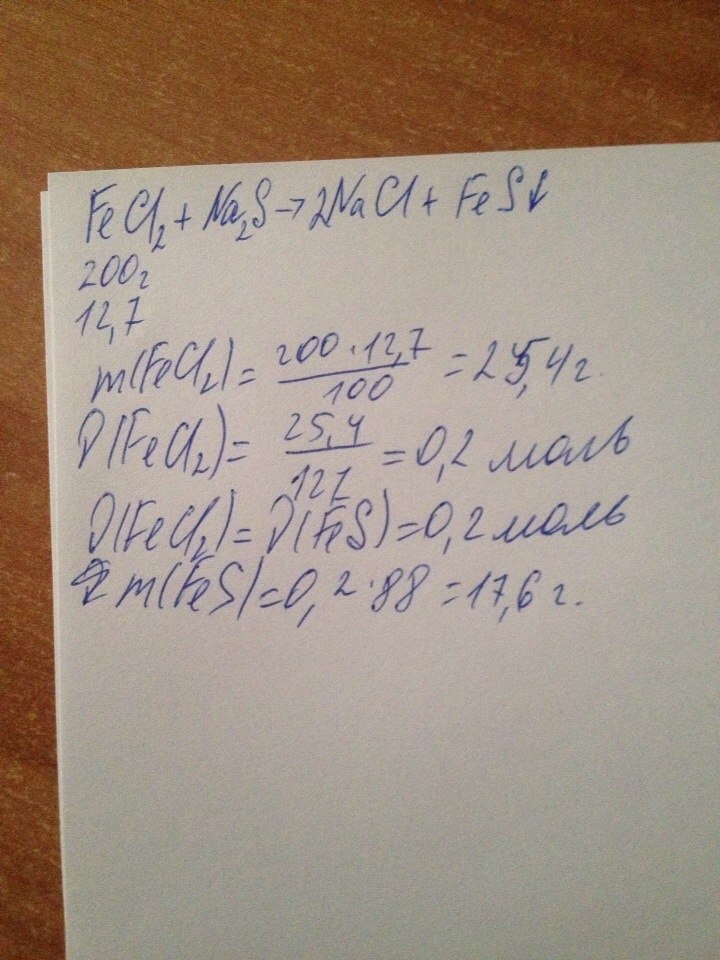 FeCl₂ + Na₂S → 2NaCl + FeS↓
200г
12,7
m(FeCl₂) = 200·12,7/100 = 25,4 г.
ν(FeCl₂) = 25,4/127 = 0,2 моль
ν(FeCl₂) = ν(FeS) = 0,2 моль
m(FeS) = 0,2·88 = 17,6 г.